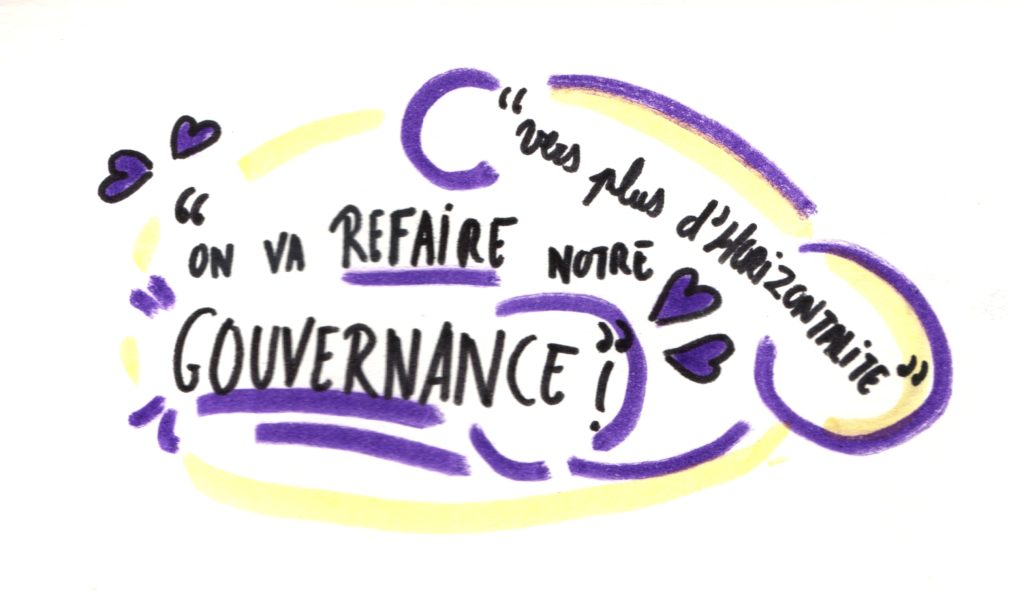 “ON VA REFAIRE NOTRE
GOUVERNANCE”!
“vers plus d'HORIZONTALITE”